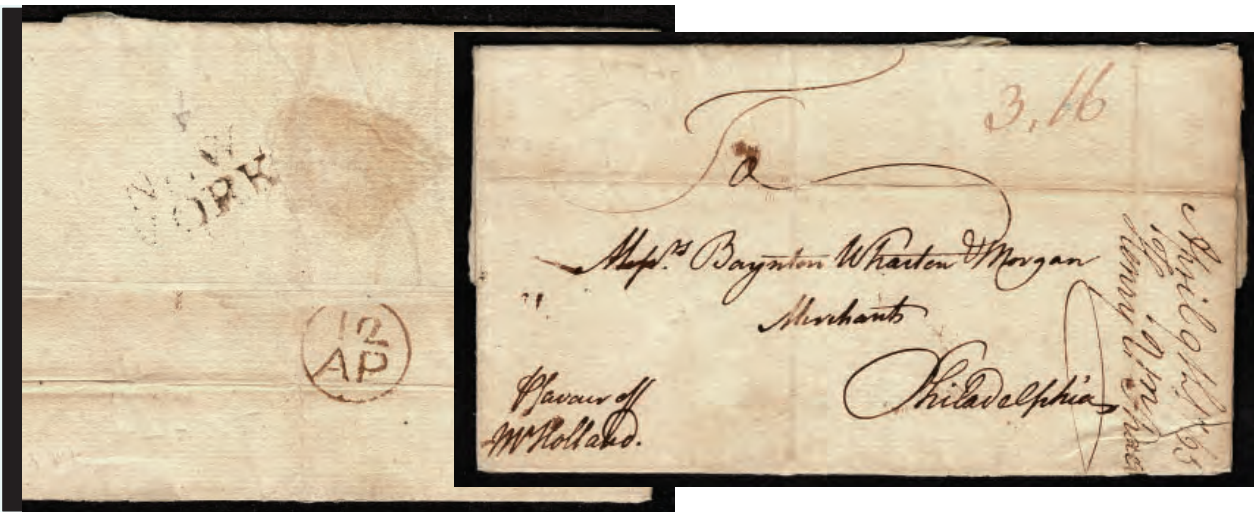 NEW
YORK
12
AP
3.16
To
Mess.rs Baynton Wharton & Morgan
Merchants
Philadelphia
Favour off
Mr Holland.
April 9th 1765
Henry